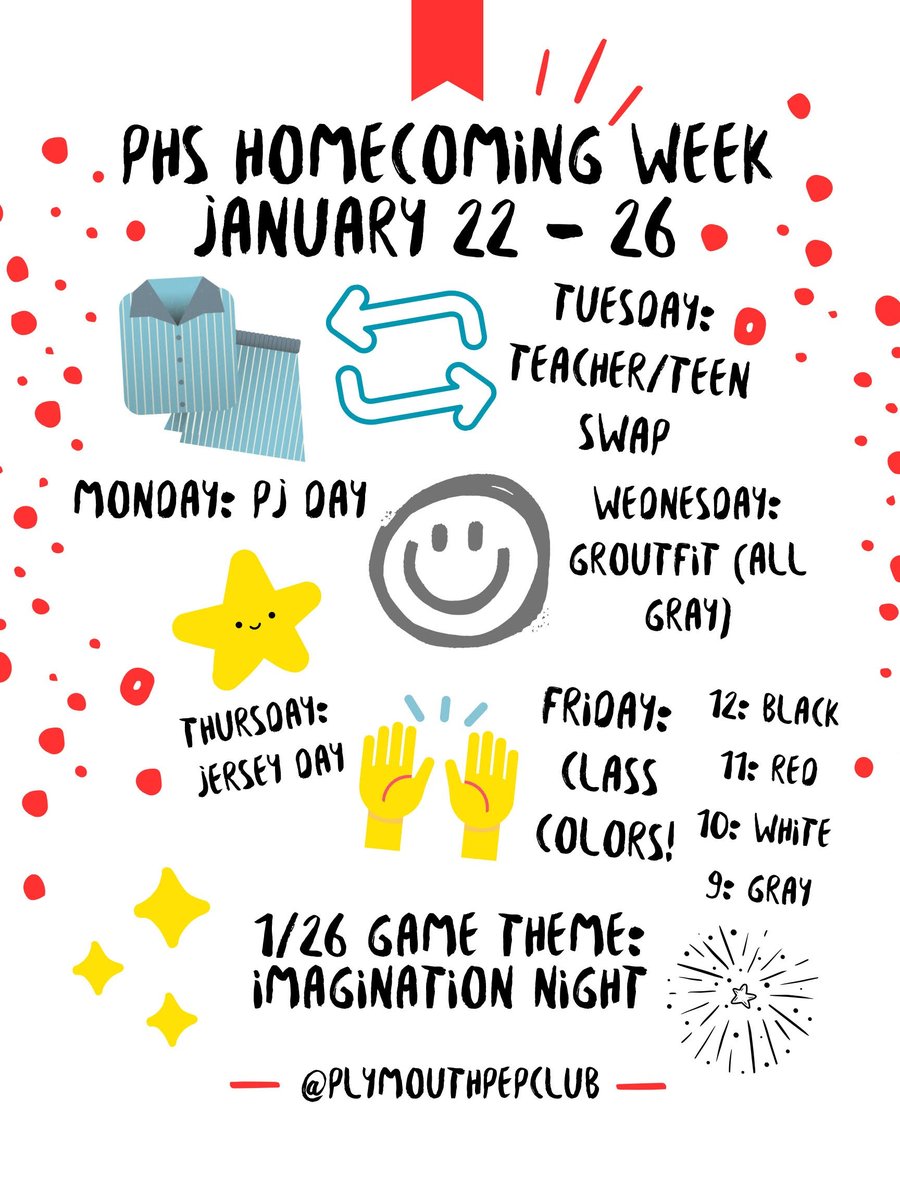 PHS HOMECOMING WEEK
JANUARY 22 - 26
MONDAY: PJ DAY
TUESDAY:
TEACHER/TEEN
SWAP
WEDNESDAY:
GROUTFIT (ALL
GRAY)
THURSDAY:
JERSEY DAY
FRIDAY:
CLASS
COLORS!
12: BLACK
11: RED
10: WHITE
9: GRAY
1/26 GAME THEME:
IMAGINATION NIGHT
@PLYMOUTHPEPCLUB